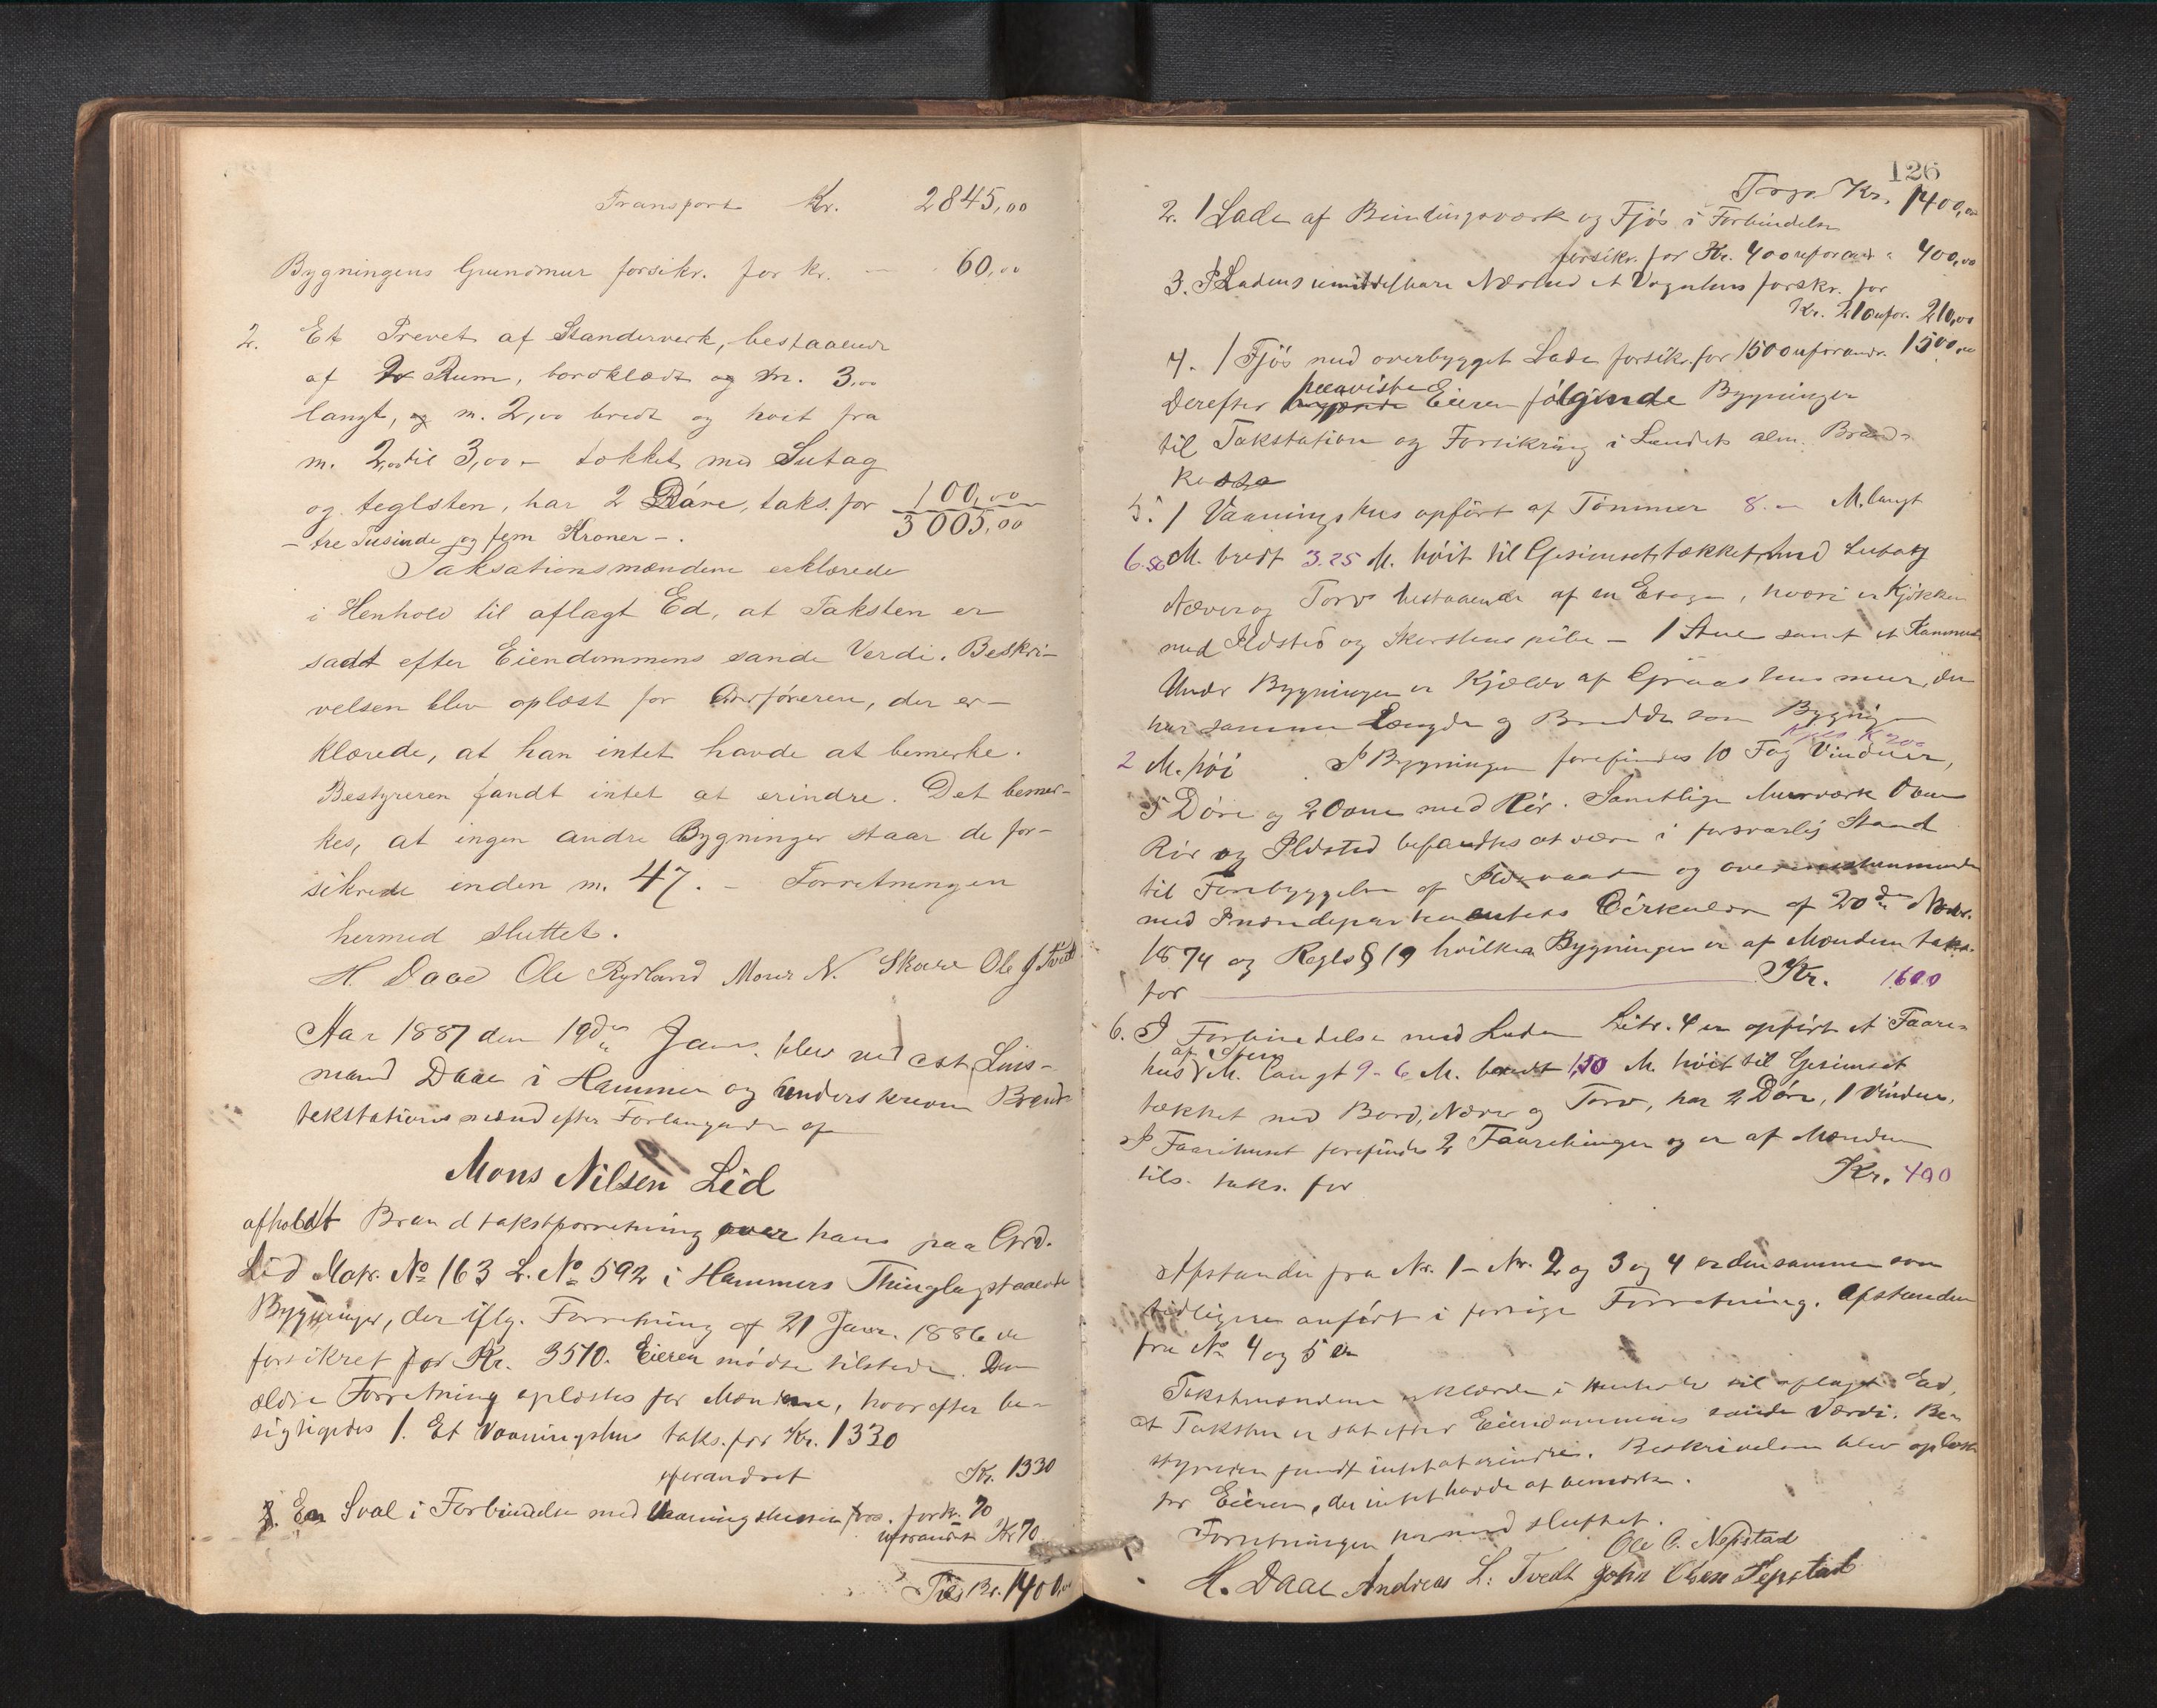 Transport Kr. 2845,00
Bygningens Grundmur forsikr. for kr. — 60,00
2. Et Prevet af Standerverk, bestaaende
af 2 Rum, bordklædt og m. 3,00
langt, og m. 2,00 bredt og høit fra
m. 2,00 til 3,00 – tækket med Sutag
og teglsten, har 2 Døre, taks. for 100,00
– tre Tusinde og fem Kroner –. 3005,00
Taksationsmændene erklærede
i Henhold til aflagt Ed, at Taksten er
sadt efter Eiendommens sande Verdi. Beskri-
velsen blev oplæst for Anføreren, der er-
klærede, at han intet havde at bemerke.
Bestyreren fandt intet at erindre. Det bemer-
kes, at ingen andre Bygninger staar de for-
sikrede inden m. 47. – Forretningen
hermed sluttet.
H. Daae Ole Rydland Mons N. Skare Ole J Tvedt
Aar 1887 den 19de Janr. blev ved cst. Lens-
mand Daae i Hammer og underskrevne Brand-
takstationsmænd efter Forlangende af
Mons Nilsen Lid
afholdt Brandtakstforretning over hans paa Grd.
Lid Matr. No 163 L. No 592 i Hammers Thinglag staaende
Bygninger, der iflg. Forretning af 21 Janr. 1886 er
forsikret for Kr. 3510. Eieren mødte tilstede. Den
ældre Forretning oplæstes for Mændene, hvorefter be-
sigtigedes 1. Et Vaaningshus taks. for Kr. 1330
uforandret Kr. 1330
2. En Sval i Forbindelse med Vaaningshuset fors. for kr. 70
uforandret Kr 70
Tils Kr. 1400,00
126
Transp. Kr. 1400,00
2. 1 Lade af Bindingsværk og Fjøs i Forbindelse
forsikr. for Kr. 400 uforandr. " 400,00
3. I Ladens umiddelbare Nærhed et Vognhus forsikr. for
Kr. 210 ufor. 210,00
4. 1 Fjøs med overbygget Lade forsikr. for 1500 uforandr. 1500,00
paaviste
Derefter Eieren følgende Bygninger
til Takstation og Forsikring i Landets alm. Brand-
kasse
5. 1 Vaaningshus opført af Tømmer 8. – M. langt
6.50 M. bredt 3.25 M. høit til Gesimset, tækket med Sutag
Næver og Torv bestaaende af en Etage, hvori er Kjøkken
med Ildsted og Skorstenspibe – 1 Stue samt et Kammer
Under Bygningen er Kjælder af Graastensmur, der
har samme Længde og Bredde som Bygningen
2 M. høi. I Bygningen forefindes 10 Fag Vinduer,
5 Døre og 2 Ovne med Rør. Samtlige Murværk Ovne
Rør og Ildsted befandtes at være i forsvarlig Stand
til Forebyggelse af Ildsvaade og overensstemmende
med Indredepartementets Cirkulær af 20de Novbr.
1874 og Regls § 19 hvilken Bygningen er af Mændene taks.
for Kr. 1600
6. I Forbindelse med Laden Litr. 4 er opført et Faare-
af Sten
hus M. langt 9 – 6 M. bredt 1,50 M. høit til Gesimset
tækket med Bord, Næver og Torv, har 2 Døre, 1 Vindue.
I Faarehuset forefindes 2 Faarebinger og er af Mændene
tils. taks. for Kr. 400
Afstanden fra Nr. 1 – Nr. 2 og 3 og 4 er densamme som
tidligere anført i forrige Forretning. Afstanden
fra No 4 og 5 er
Takstmændene erklærede i Henhold til aflagt Ed,
at Taksten er sat efter Eiendommens sande Værdi. Be-
styreren fandt intet at erindre. Beskrivelsen blev oplæst
for Eieren, der intet havde at bemærke.
Forretningen hermed sluttet.
Ole O. Nepstad
H. Daae Andreas L. Tvedt John Olsen Tepstad